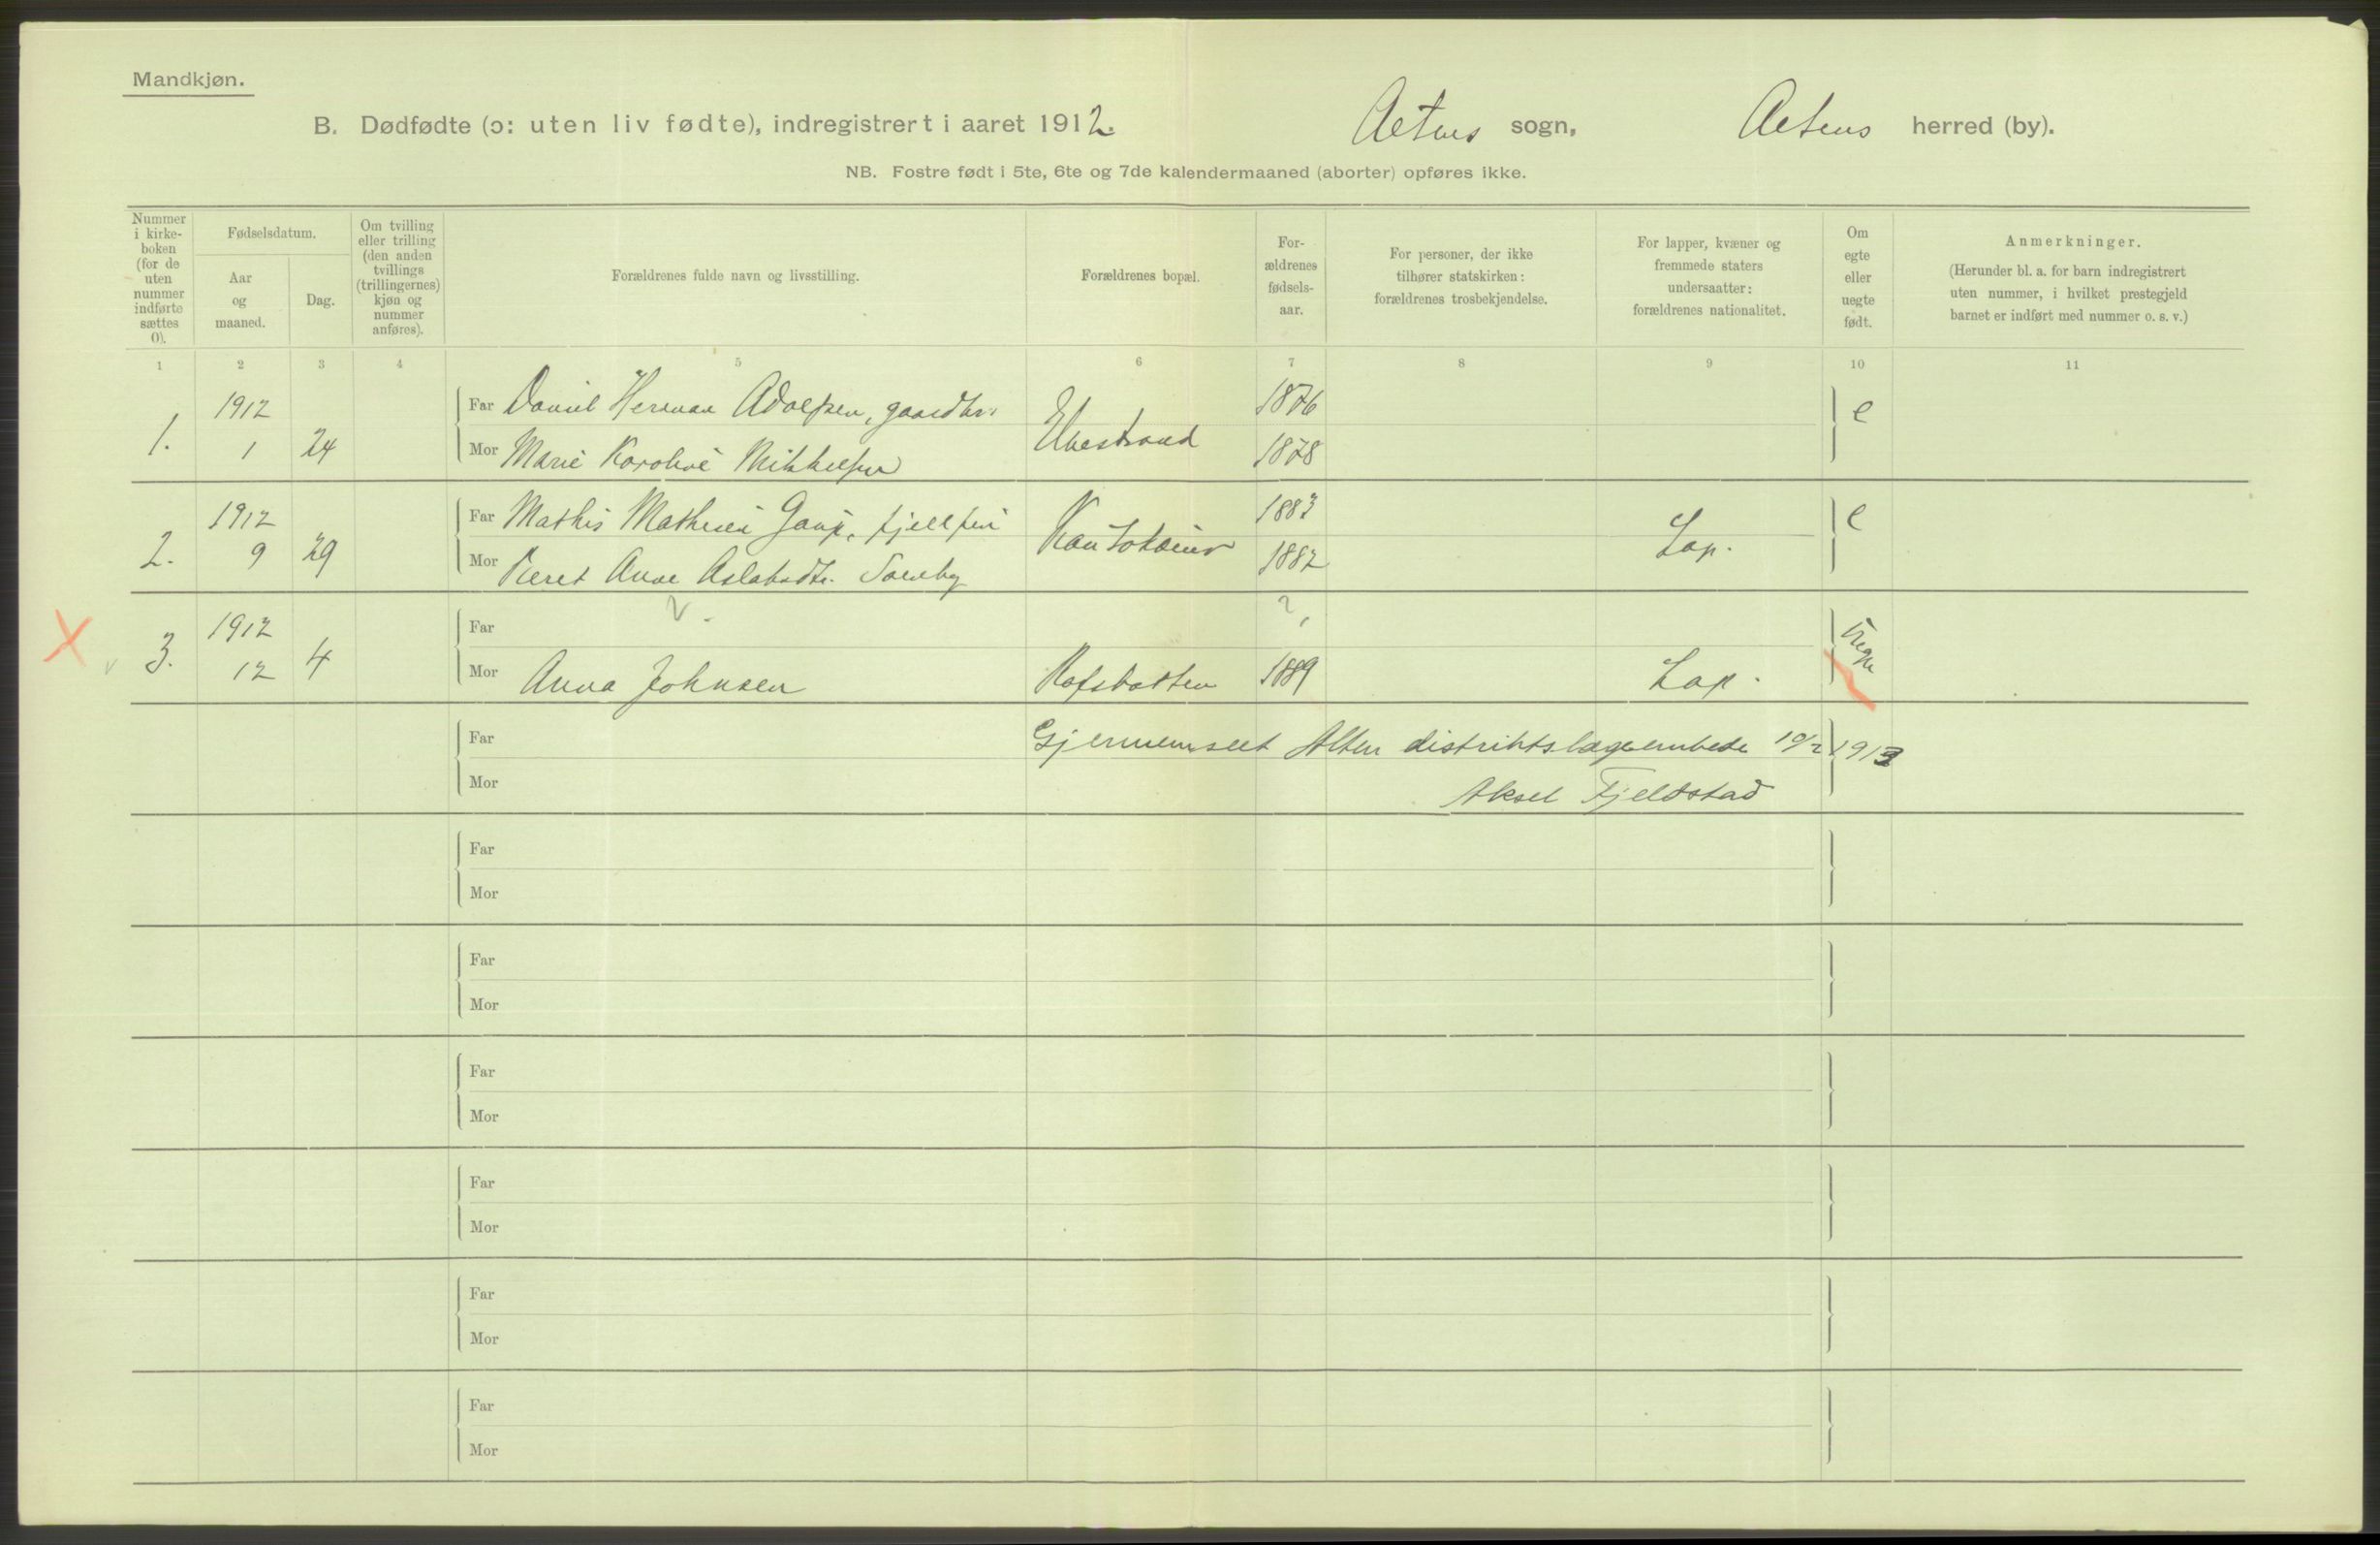 Mandkjøn.
B. Dødfødte (ɔ: uten liv fødte), indregistrert i aaret 1912. Altens sogn, Altens herred (by).
NB. Fostre født i 5te, 6te og 7de kalendermaaned (aborter) opføres ikke.
Nummer i kirke- boken (for de uten nummer indførte sættes 0).
Fødselsdatum.
Aar og maaned.
Dag.
Om tvilling eller trilling (den anden tvillings (trillingernes) kjøn og nummer anføres).
Forældrenes fulde navn og livsstilling.
Forældrenes bopæl.
For- ældrenes fødsels- aar.
For personer, der ikke tilhører statskirken: forældrenes trosbekjendelse.
For lapper, kvæner og fremmede staters undersaatter: forældrenes nationalitet.
Om egte eller uegte født.
Anmerkninger.
(Herunder bl. a. for barn indregistrert uten nummer, i hvilket prestegjeld barnet er indført med nummer o. s. v.)
1 2 3 4 5 6 7 8 9 10 11
1912 Far Daniel Herman Adolfsen, gaardbr. 1876 e
1. 1 24 Mor Marie Karoline Mikkelsen Elvestrand 1878
1912 Far Mathis Mathisen Gaup, fjellfin Kautokeino 1883 Lap. e
2. 9 29 Mor Beret Anne Aslaksdtr. 1882
1912 Far ? ?
3. 12 4 Mor Anna Johnsen Rafsbotten 1889 Lap. uegte
Far Gjennemseet Alten distriktslægeembede 10/2 1913
Mor Aksel Fjeldstad
Far
Mor
Far
Mor
Far
Mor
Far
Mor
Far
Mor
Far
Mor